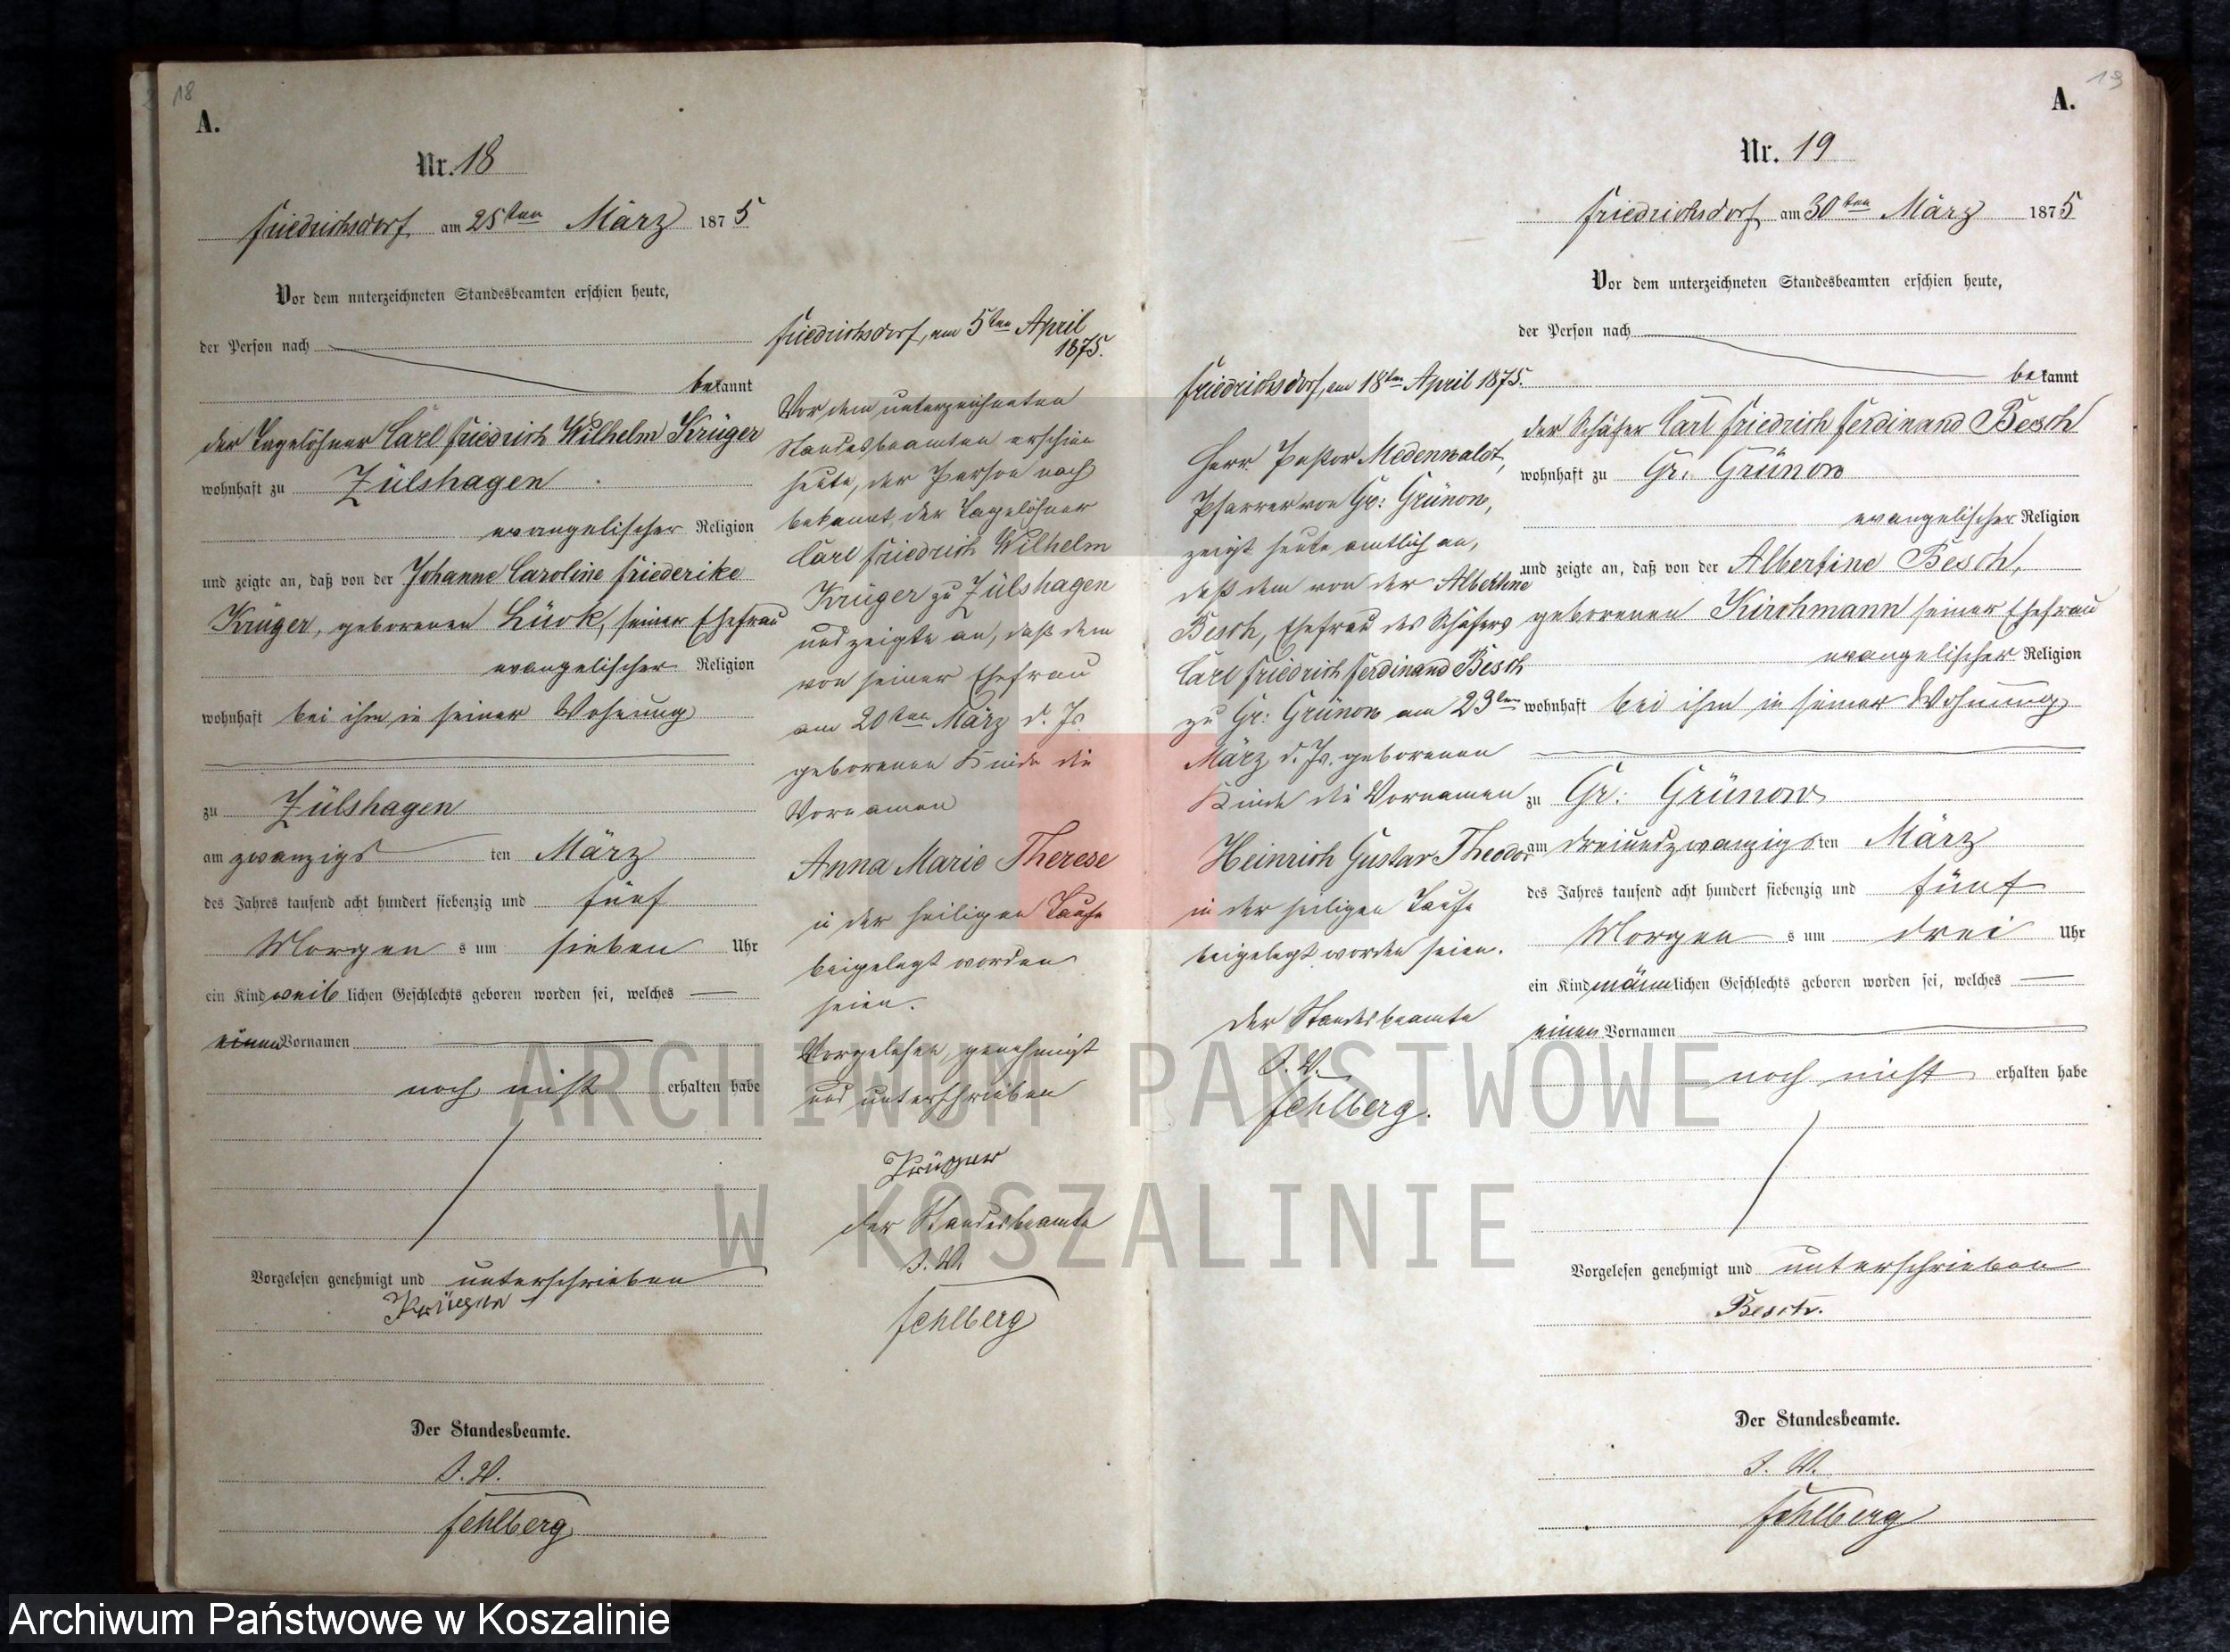 18
A.
Nr. 18
Friedrichsdorf am 25ten März 1875
Vor dem unterzeichneten Standesbeamten erschien heute,
der Person nach
bekannt
der Tagelöhner Carl Friedrich Wilhelm Krüger
wohnhaft zu Zülshagen
evangelischer Religion
und zeigte an, daß von der Johanne Caroline Friederike
Krüger, geborenen Lück, seiner Ehefrau
evangelischer Religion
wohnhaft bei ihm in seiner Wohnung
zu Zülshagen
am zwanzigsten März
des Jahres tausend acht hundert siebenzig und fünf
Morgens um sieben Uhr
ein Kind weiblichen Geschlechts geboren worden sei, welches
einen Vornamen
noch nicht erhalten habe
Vorgelesen genehmigt und unterschrieben
Krüger
Der Standesbeamte.
I. V.
Fehlberg
Friedrichsdorf, am 5ten April
1875.
Vor dem unterzeichneten
Standesbeamten erschien
heute, der Person nach
bekannt, der Tagelöhner
Carl Friedrich Wilhelm
Krüger zu Zülshagen
und zeigte an, daß dem
von seiner Ehefrau
am 20ten März d. Js.
geborenen Kinde die
Vornamen
Anna Marie Therese
in der heiligen Taufe
beigelegt worden
seien.
Vorgelesen, genehmigt
und unterschrieben
Krüger
Der Standesbeamte
I. V.
Fehlberg
19
A.
Nr. 19
Friedrichsdorf am 30ten März 1875
Vor dem unterzeichneten Standesbeamten erschien heute,
der Person nach
bekannt
der Schäfer Carl Friedrich Ferdinand Besch
wohnhaft zu Gr. Grünow
evangelischer Religion
und zeigte an, daß von der Albertine Besch,
geborenen Kirchmann seiner Ehefrau
evangelischer Religion
wohnhaft bei ihm in seiner Wohnung
zu Gr. Grünow
am dreiundzwanzigsten März
des Jahres tausend acht hundert siebenzig und fünf
Morgens um drei Uhr
ein Kind männlichen Geschlechts geboren worden sei, welches
einen Vornamen
noch nicht erhalten habe
Vorgelesen genehmigt und unterschrieben
Besch.
Der Standesbeamte.
I. V.
Fehlberg
Friedrichsdorf, am 18ten April 1875.
Herr Pastor Medenwaldt,
Pfarrer von Gr: Grünow,
zeigt heute amtlich an,
daß dem von der Albertine
Besch, Ehefrau des Schäfers
Carl Friedrich Ferdinand Besch
zu Gr: Grünow am 23ten
März d. Js. geborenen
Kinde die Vornamen
Heinrich Gustav Theodor
in der heiligen Taufe
beigelegt worden seien.
Der Standesbeamte
I. V.
Fehlberg.
ARCHIWUM PAŃSTWOWE
W KOSZALINIE
Archiwum Państwowe w Koszalinie